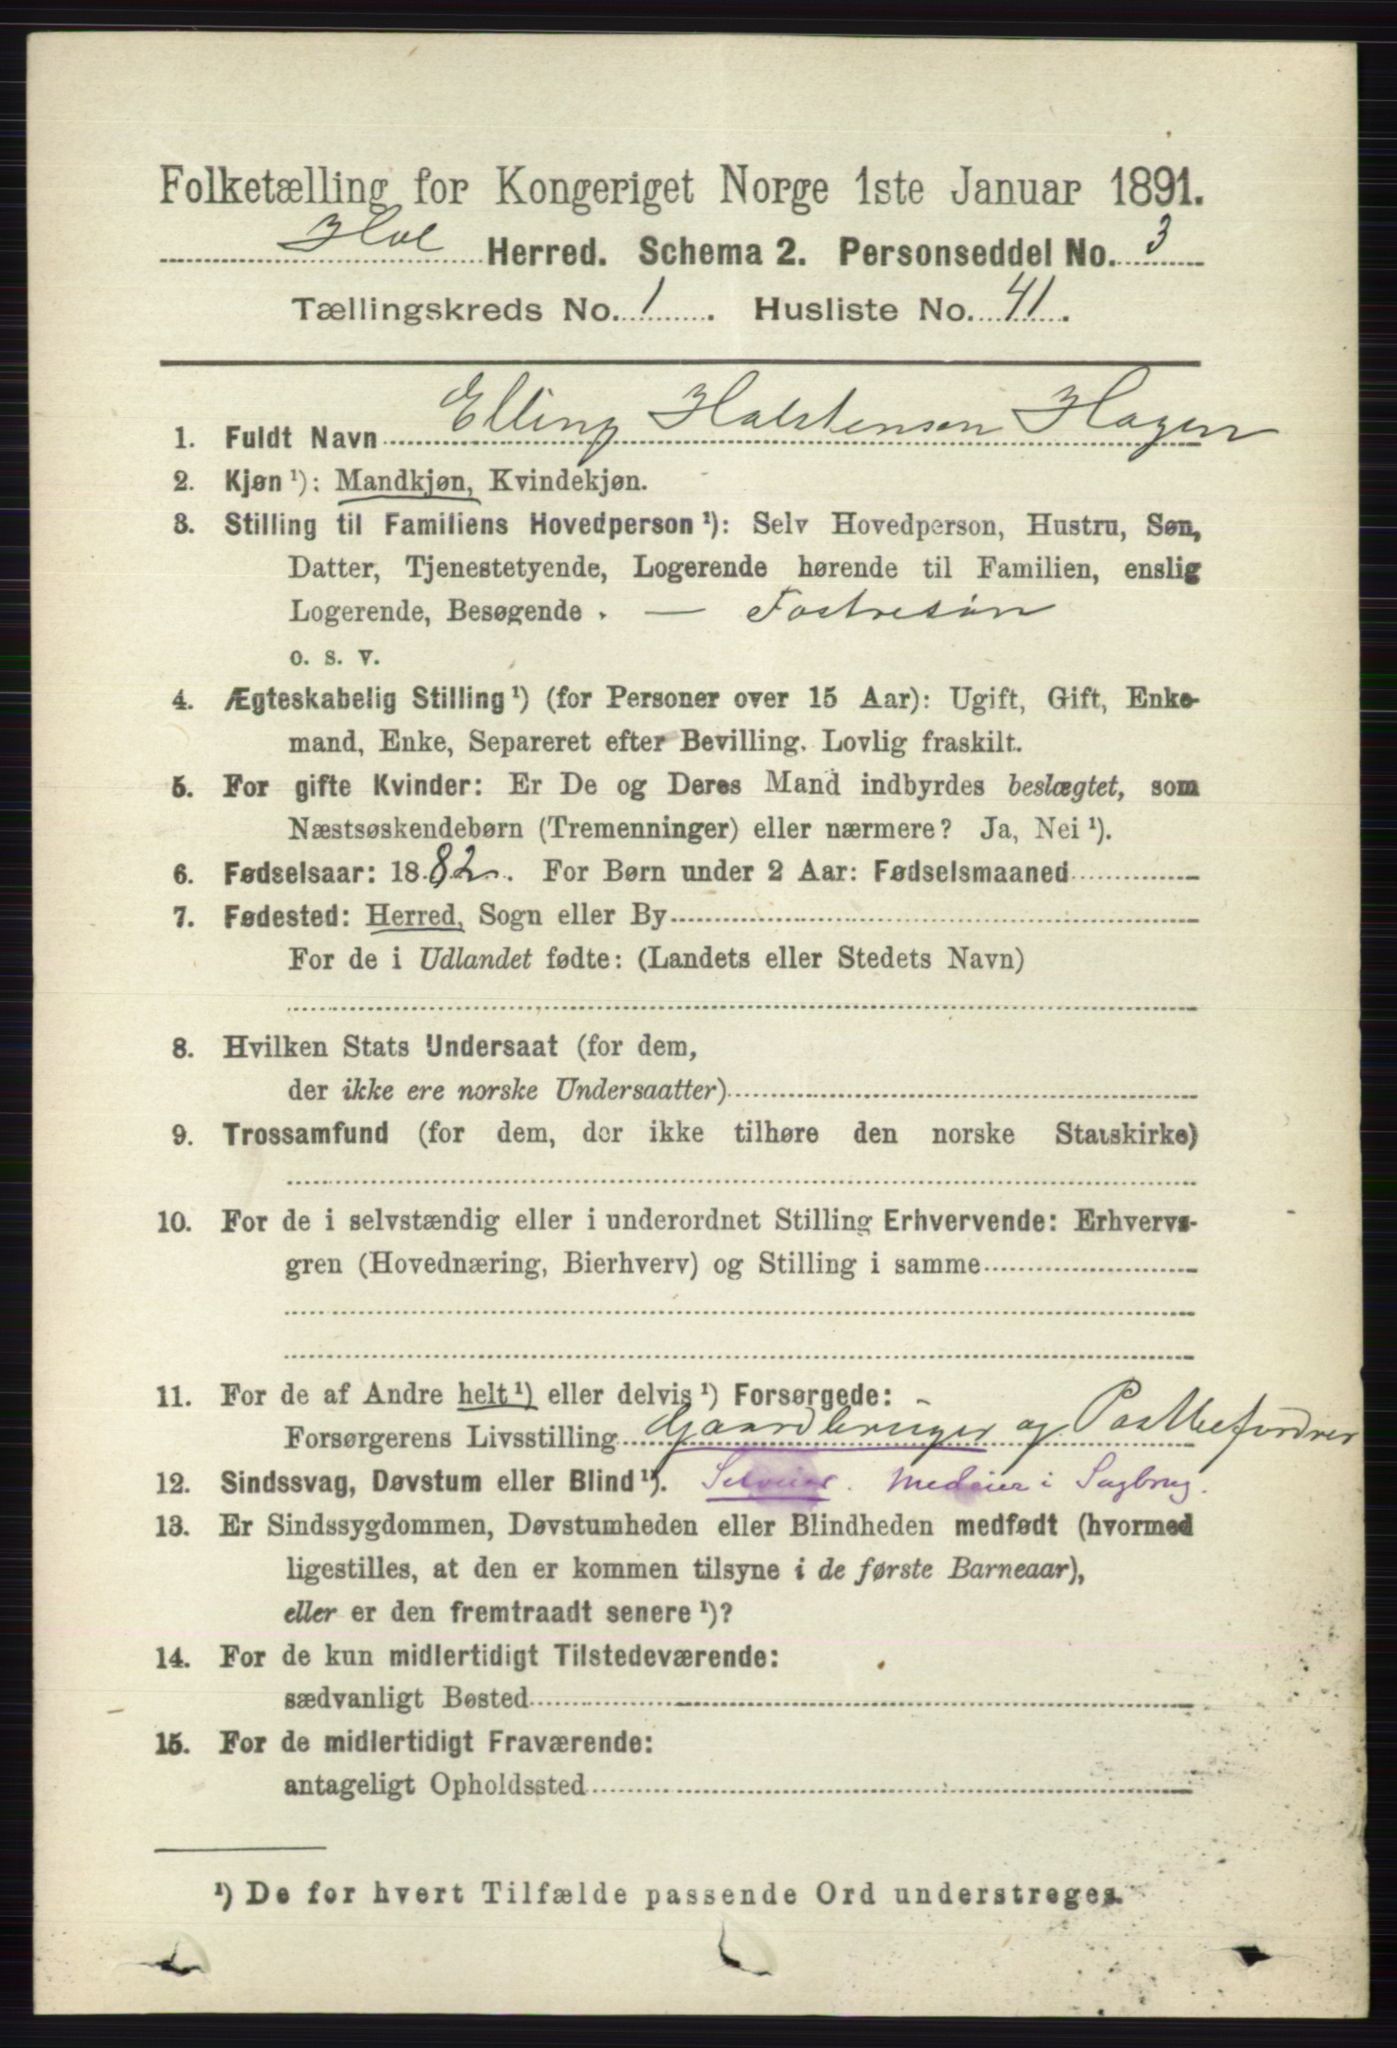 Folketælling for Kongeriget Norge 1ste Januar 1891.
Hol Herred. Schema 2. Personseddel No. 3
Tællingskreds No. 1. Husliste No. 41.
1. Fuldt Navn Elling Halstensen Hagen
2. Kjøn ¹): Mandkjøn, Kvindekjøn.
3. Stilling til Familiens Hovedperson ¹): Selv Hovedperson, Hustru, Søn,
Datter, Tjenestetyende, Logerende hørende til Familien, enslig
Logerende, Besøgende . — Fostresøn
o. s. v.
4. Ægteskabelig Stilling ¹) (for Personer over 15 Aar): Ugift, Gift, Enke-
mand, Enke, Separeret efter Bevilling. Lovlig fraskilt.
5. For gifte Kvinder: Er De og Deres Mand indbyrdes beslægtet, som
Næstsøskendebørn (Tremenninger) eller nærmere? Ja, Nei ¹).
6. Fødselsaar: 1882. For Børn under 2 Aar: Fødselsmaaned
7. Fødested: Herred, Sogn eller By
For de i Udlandet fødte: (Landets eller Stedets Navn)
8. Hvilken Stats Undersaat (for dem,
der ikke ere norske Undersaatter)
9. Trossamfund (for dem, der ikke tilhøre den norske Statskirke)
10. For de i selvstændig eller i underordnet Stilling Erhvervende: Erhvervs-
gren (Hovednæring, Bierhverv) og Stilling i samme
11. For de af Andre helt ¹) eller delvis ¹) Forsørgede: -
Forsørgerens Livsstilling Gaardbruger og Postbefordrer
12. Sindssvag, Døvstum eller Blind ¹). Selveier. Medeier i Sagbrug.
13. Er Sindssygdommen, Døvstumheden eller Blindheden medfødt (hvormed
ligestilles, at den er kommen tilsyne i de første Barneaar),
eller er den fremtraadt senere ¹)?
14. For de kun midlertidigt Tilstedeværende:
sædvanligt Bosted
15. For de midlertidigt Fraværende:
antageligt Opholdssted
¹) De for hvert Tilfælde passende Ord understreges.